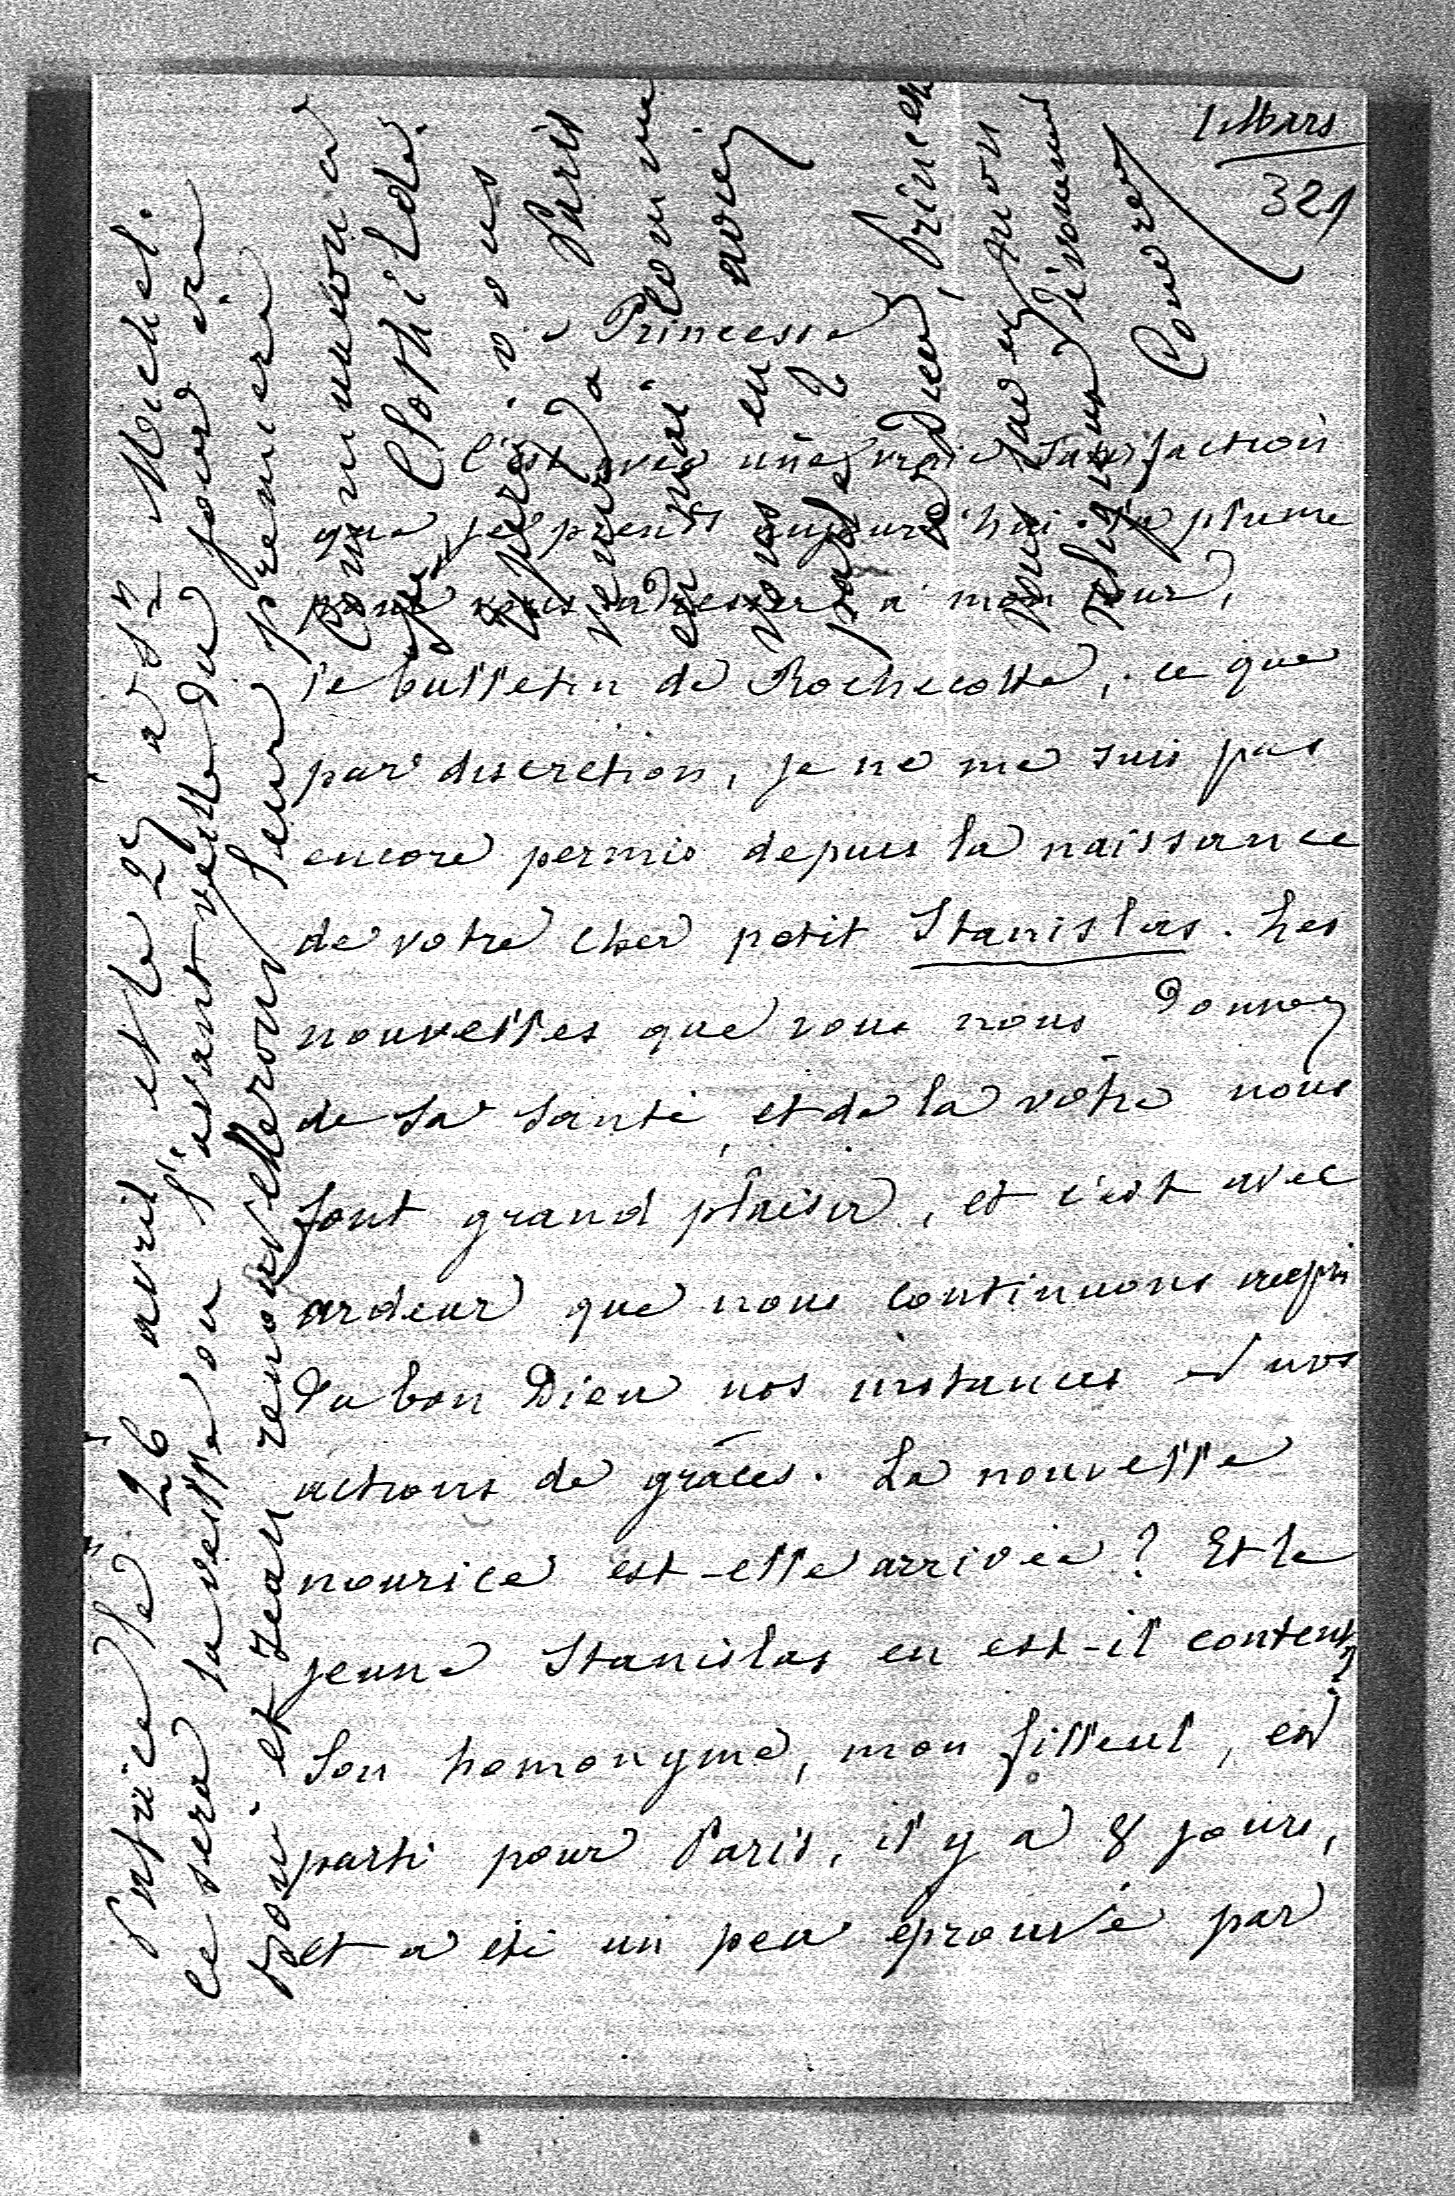 1 Mars
321
Princesse
C'est avec une vraie satisfaction
que je prends aujourd'hui la plume
pour vous adresser, à mon tour,
le bulletin de Rochecotte, ce que
par discretion, je ne me suis pas
encore permis depuis la naissance
de votre cher petit Stanislas. Les
nouvelles que vous nous donnez
de sa santé, et de la vôtre nous
font grand plaisir, et c'est avec
ardeur que nous continuons auprès
du bon Dieu nos instances et nos
actions de grâces. La nouvelle
nourice est-elle arrivée ? Et le
jeune Stanislas en est-il content ?
Son homonyme, mon filleul, est
parti pour Paris, il y a 8 jours,
et a été un peu éprouvé par
le 26 avril et le 2 Michel.
Ce sera la veille ou l'avant veille du jour où
Boni et Jean renouvelleront leur première
Communion à
Clothilde.
vous
venir à Paris
comme
vous en avez
parlé ?
adieu, Princesse